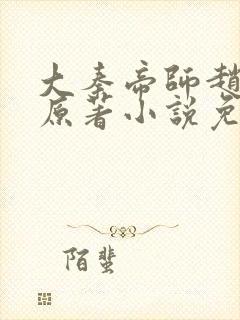 大秦帝師趙
原著小說免
陌蜚